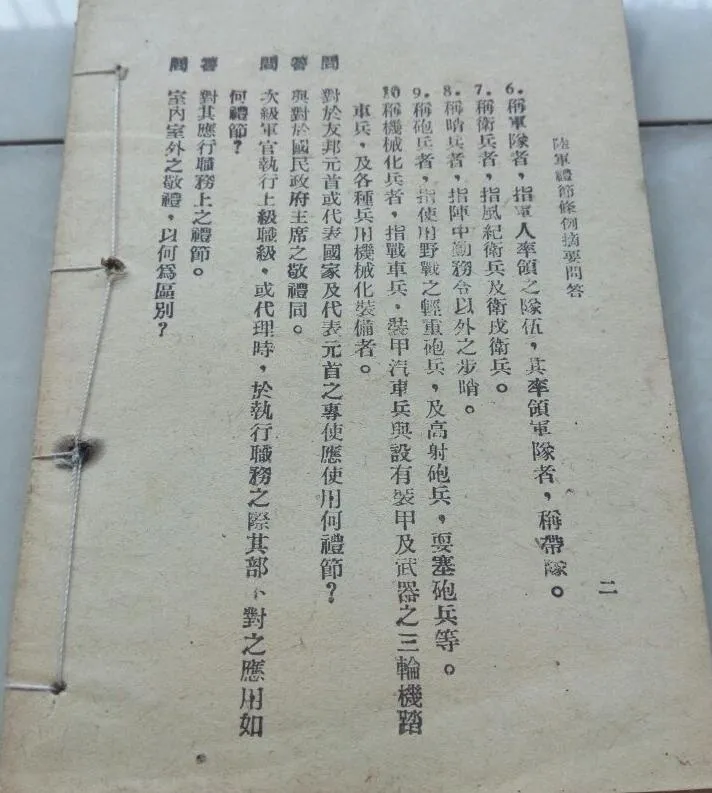 陸軍禮節條例摘要問答
二
6.稱軍隊者，指軍人率領之隊伍，其率領軍隊者，稱帶隊。
7.稱衛兵者，指風紀衛兵及衛戍衛兵。
8.稱哨兵者，指陣中勤務令以外之步哨。
9.稱砲兵者，指使用野戰之輕重砲兵，及高射砲兵，要塞砲兵等。
10稱機械化兵者，指戰車兵，裝甲汽車兵與設有裝甲及武器之三輪機踏
車兵，及各種兵用機械化裝備者。
問 對於友邦元首或代表國家及代表元首之專使應使用何禮節？
答 與對於國民政府主席之敬禮同。
問 次級軍官執行上級職級，或代理時，於執行職務之際其部下對之應用如
何禮節？
答 對其應行職務上之禮節。
問 室內室外之敬禮，以何爲區別？